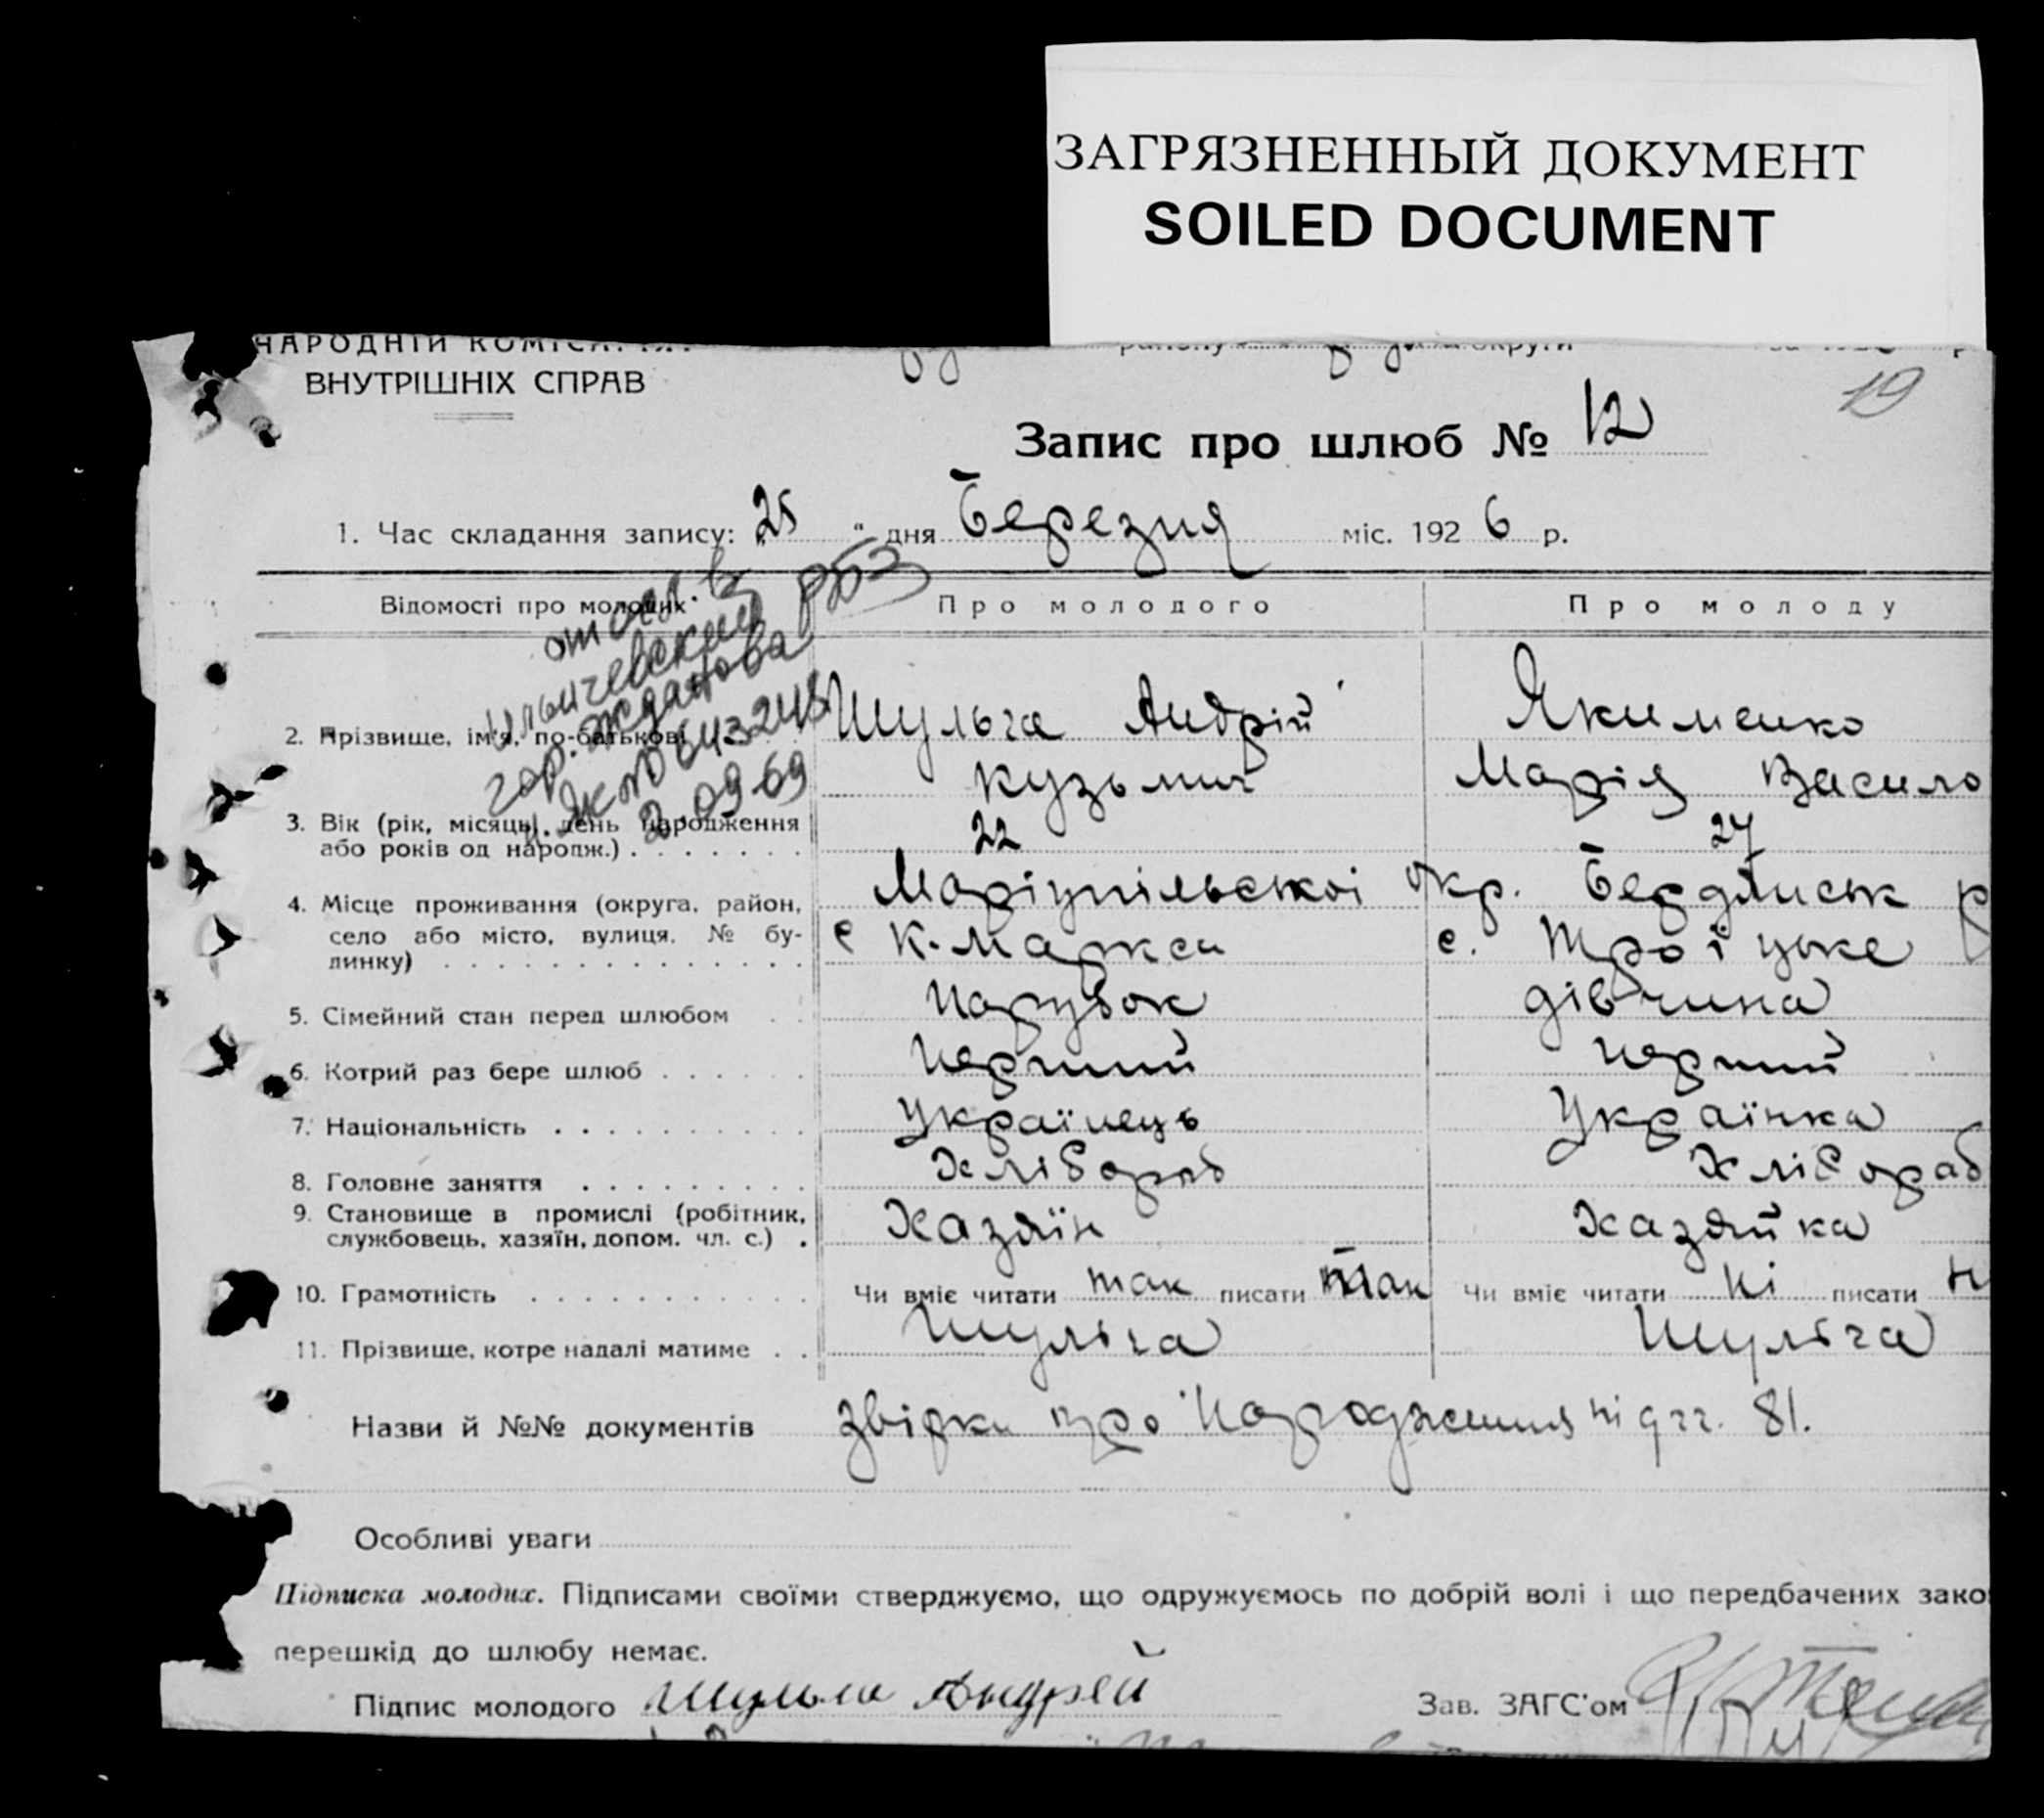 ЗАГРЯЗНЕННЫЙ ДОКУМЕНТ
SOILED DOCUMENT
НАРОДНІЙ
ВНУТРІШНІХ СПРАВ
19
Запис про шлюб № 12
1. Час складання запису: „25 “ дня Березня міс. 1926 р.
Відомості про молодих Про молодого Про молоду
гор. Жданова
2.09.69
2. Прізвище, ім'я, по-батькові Шульга Андрій Якименко
Кузьмич Марія Васило
3. Вік (рік, місяць, день народження
або років од нарожд.) 22 24
4. Місце проживання (округа, район, Маріупільської окр. Бердянськ р
село або місто, вулиця, № бу- с К-Маркса с. Троїцьке
динку)
5. Сімейний стан перед шлюбом Парубок дівчина
6. Котрий раз бере шлюб Перший перший
7. Національність Українець Українка
8. Головне заняття Хлібороб Хлібораб
9. Становище в промислі (робітник, Хазяїн Хазяйка
службовець, хазяїн, допом. чл. с.)
10. Грамотність Чи вміє читати так писати так Чи вміє читати Ні писати Н
11. Прізвище, котре надалі матиме Шульга Шульга
Назви й №№ документів про Народження 81.
Особливі уваги
Підписка молодих. Підписами своїми стверджуємо, що одружуємось по добрій волі і що передбачених зако
перешкід до шлюбу немає.
Підпис молодого Шульга Андрей Зав. ЗАГС'ом